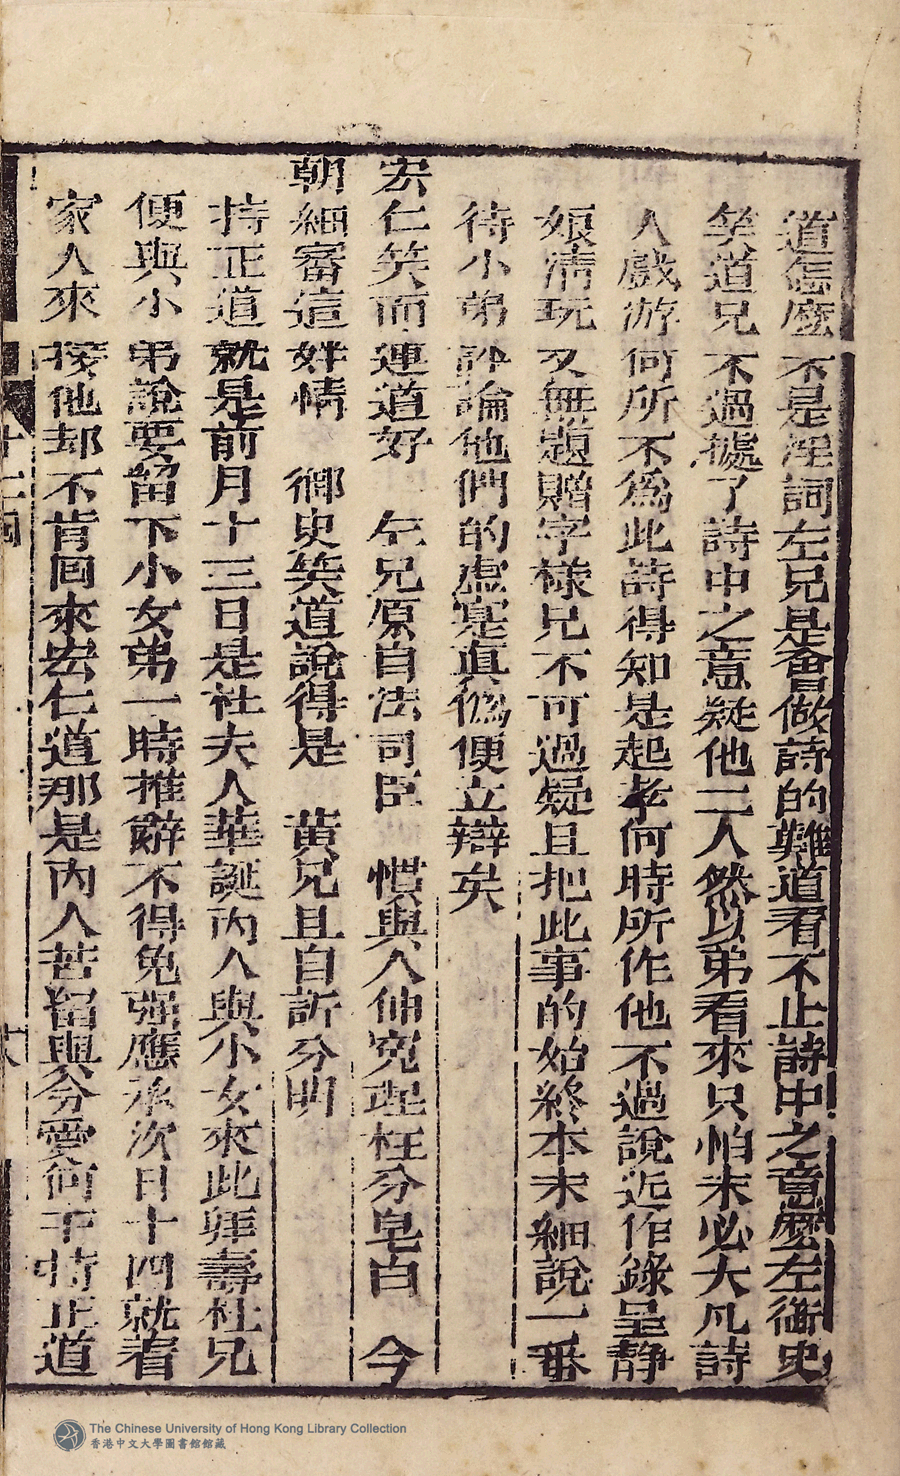 道怎麽不是淫詞左兄是會做詩的難道看不止詩中之意麽左御史
笑道兄不過據了詩中之意疑他二人然以弟看來只怕未必大凡詩
人戲游何所不爲此詩得知是起孝何時所作他不過說近作錄呈靜
娘清玩又無題贈字樣兄不可過疑且把此事的始終本末細說一番
待小弟評論他們的虛寔真僞便立辯矣
宏仁笑而連道好 左兄原自法司臣 慣與人伸寃理枉分皂白 今
朝細審這姦情 御史笑道說得是 黄兄且自訴分明
持正道就是前月十三日是杜夫人華誕內人與小女來此拜壽杜兄
便與小弟說要留下小女弟一時推辭不得免强應承次日十四就着
家人來接他却不肯回來宏仁道那是內人苦留與分愛何干持正道
十二回
十八
The Chinese University of Hong Kong Library Collection
香港中文大學圖書館館藏